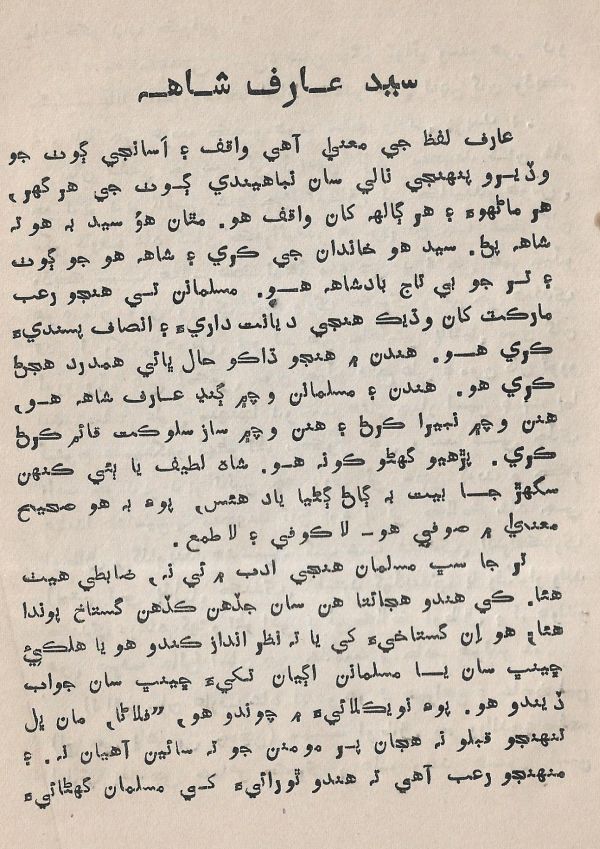 سيد عارف شاهه
عارف لفظ جي معنيٰ آهي واقف ۽ اَسانجي ڳوٺ جو
وڏيرو پنهنجي نالي سان نباهيندي ڳوٺ جي هر گهر،
هر ماڻهوءَ ۽ هر ڳالهه کان واقف هو. مٿان هوُ سيد به هو ته
شاهه پڻ. سيد هو خاندان جي ڪري ۽ شاهه هو جو ڳوٺ
۽ تر جو بي تاج بادشاهه هو. مسلمانن تي هنجو رعب
مارڪٽ کان وڌيڪ هنجي ديانت داريءَ ۽ انصاف پسنديءَ
ڪري هو. هندن ۾ هنجو ڌاڪو حال ڀائي همدرد هجڻ
ڪري هو. هندن ۽ مسلمانن وچ ۾ ڳنڍ عارف شاهه هو،
هنن وچ ۾ نبيرا ڪرڻ ۽ هنن وچ ۾ ساز سلوڪت قائم ڪرڻ
ڪري. پڙهيو گهڻو ڪونه هو. شاهه لطيف يا ٻئي ڪنهن
سگهڙ جا بيت به ڳاڻ ڳڻيا ياد هئس، پوءِ به هو صحيح
معنيٰ ۾ صوفي هو - لاڪوفي ۽ لاطمع.
تر جا سڀ مسلمان هنجي ادب ۾ ئي نه، ضابطي هيٺ
هئا. ڪي هندو هجائتا هن سان جڏهن ڪڏهن گستاخ پوندا
هئا، هو اِن گستاخيءَ کي يا ته نظر انداز ڪندو هو يا هلڪيءَ
چيٽ سان يا مسلمانن اڳيان تکيءَ چيٽ سان جواب
ڏيندو هو. پوءِ نويڪلائيءَ ۾ چوندو هو، ”فلاڻا، مان ڀل
تنهنجو قبلو نه هجان پر مومنن جو ته سائين آهيان نه. ۽
منهنجو رعب آهي ته هندو ٿورائيءَ کي مسلمان گهڻائيءَ